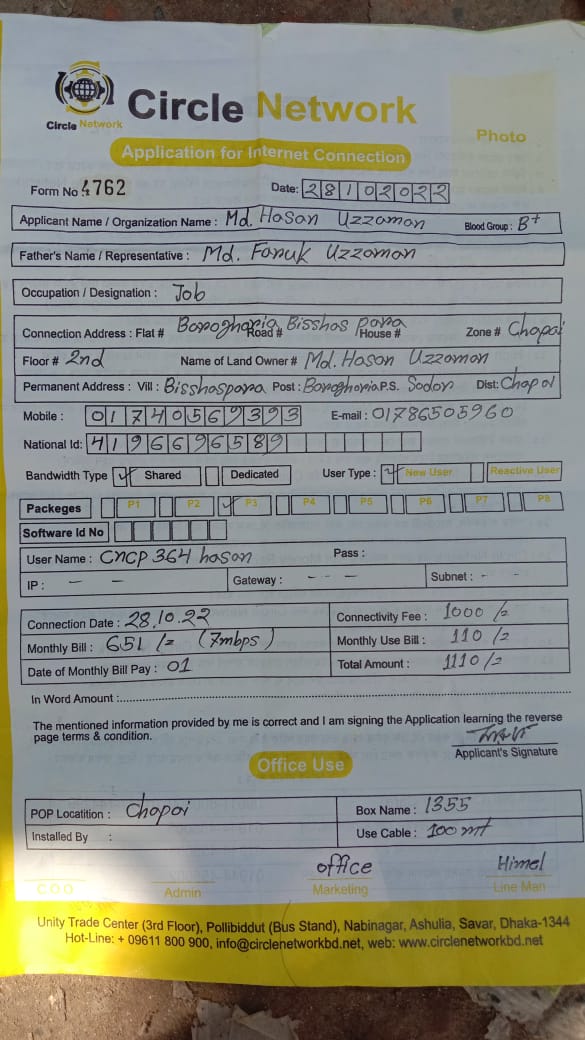 Circle Network
Circle Network
Photo
Application for Internet Connection
Form No : 4762 Date: 28102022
Applicant Name / Organization Name : Md. Hasan Uzzaman Blood Group : B+
Father's Name / Representative : Md. Faruk Uzzaman
Occupation / Designation : Job
Connection Address : Flat # Baroghoria Road # Bisshas para House # Zone # Chapai
Floor # 2nd Name of Land Owner # Md. Hasan Uzzaman
Permanent Address : Vill : Bisshaspara Post : Baroghoria P.S. Sador Dist: Chapai
Mobile : 01740569393 E-mail : 01786505960
National Id: 4196696589
Bandwidth Type ✓ Shared Dedicated User Type : ✓ New User Reactive User
Packeges P1 P2 ✓ P3 P4 P5 P6 P7 P8
Software Id No
User Name : CNCP 364 hasan Pass :
IP : - - Gateway : - - - Subnet : - -
Connection Date : 28.10.22 Connectivity Fee : 1000/=
Monthly Bill : 651/= (7mbps) Monthly Use Bill : 110/=
Date of Monthly Bill Pay : 01 Total Amount : 1110/=
In Word Amount :
The mentioned information provided by me is correct and I am signing the Application learning the reverse
page terms & condition.
Applicant's Signature
Office Use
POP Locatition : Chapai Box Name : 1355
Installed By : Use Cable : 100 mt
office Himel
C O O Admin Marketing Line Man
Unity Trade Center (3rd Floor), Pollibiddut (Bus Stand), Nabinagar, Ashulia, Savar, Dhaka-1344
Hot-Line: + 09611 800 900, info@circlenetworkbd.net, web: www.circlenetworkbd.net